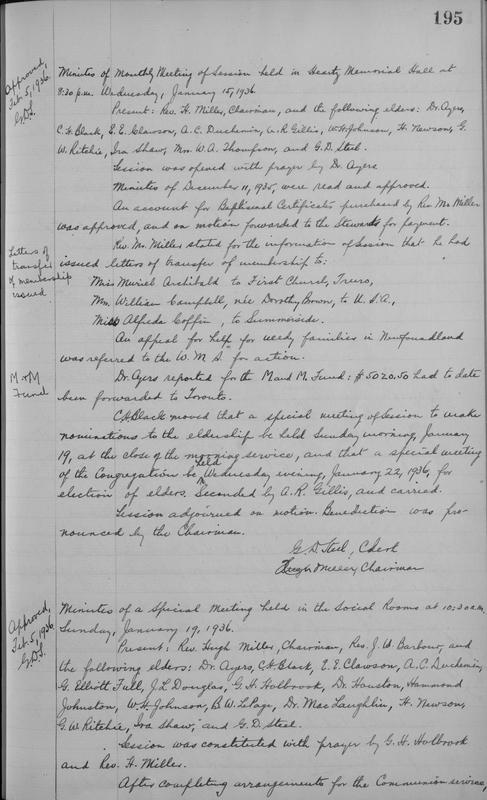 195
Approved,
Feb. 5, 1936.
G.D.S.
Minutes of Monthly Meeting of Session held in Heartz Memorial Hall at
8:30 p.m. Wednesday, January 15, 1936.
Present: Rev. H. Miller, Chairman, and the following elders: Dr. Ayers,
C.H. Black, E.E. Clawson, A.C. Duchemin, A.R. Gillis, W.H. Johnson, H. Newson, G.
W. Ritchie, Ira Shaw, Mrs. W.A. Thompson, and G.D. Steel.
Session was opened with prayer by Dr. Ayers
Minutes of December 11, 1935, were read and approved.
An account for Baptismal Certificates purchased by Rev. Mr. Miller
was approved, and on motion forwarded to the Stewards for payment.
Letters of
transfer
of membership
issued
Rev. Mr. Miller stated for the information of Session that he had
issued letters of transfer of membership to:
Miss Muriel Archibald to First Church, Truro,
Mrs. William Campbell, née Dorothy Brown, to U.S.A.,
Miss Alfreda Coffin, to Summerside.
An appeal for help for needy families in Newfoundland
was referred to the W.M.S. for action.
M & M
Fund
Dr. Ayers reported for the M and M. Fund: $5020.50 had to date
been forwarded to Toronto.
C.H. Black moved that a special meeting of Session to make
nominations to the eldership be held Sunday morning, January
19, at the close of the morning service, and that a special meeting
of the Congregation be held Wednesday evening, January 22, 1936, for
election of elders. Seconded by A.R. Gillis, and carried.
Session adjourned on motion. Benediction was pro-
nounced by the Chairman.
G.D. Steel, Clerk
Hugh Miller, Chairman
Approved,
Feb. 5, 1936.
G.D.S.
Minutes of a Special Meeting held in the Social Rooms at 10:30 a.m.
Sunday, January 19, 1936.
Present: Rev. Hugh Miller, Chairman, Rev. J.W. Barbour, and
the following elders: Dr. Ayers, C.H. Black, E.E. Clawson, A.C. Duchemin,
G. Elliott Full, J.L. Douglas, G.H. Holbrook, Dr. Houston, Hammond
Johnston, W.H. Johnson, B.W. LePage, Dr. MacLaughlin, H. Newson,
G.W. Ritchie, Ira Shaw, and G.D. Steel.
Session was constituted with prayer by G.H. Holbrook
and Rev. H. Miller.
After completing arrangements for the Communion service,